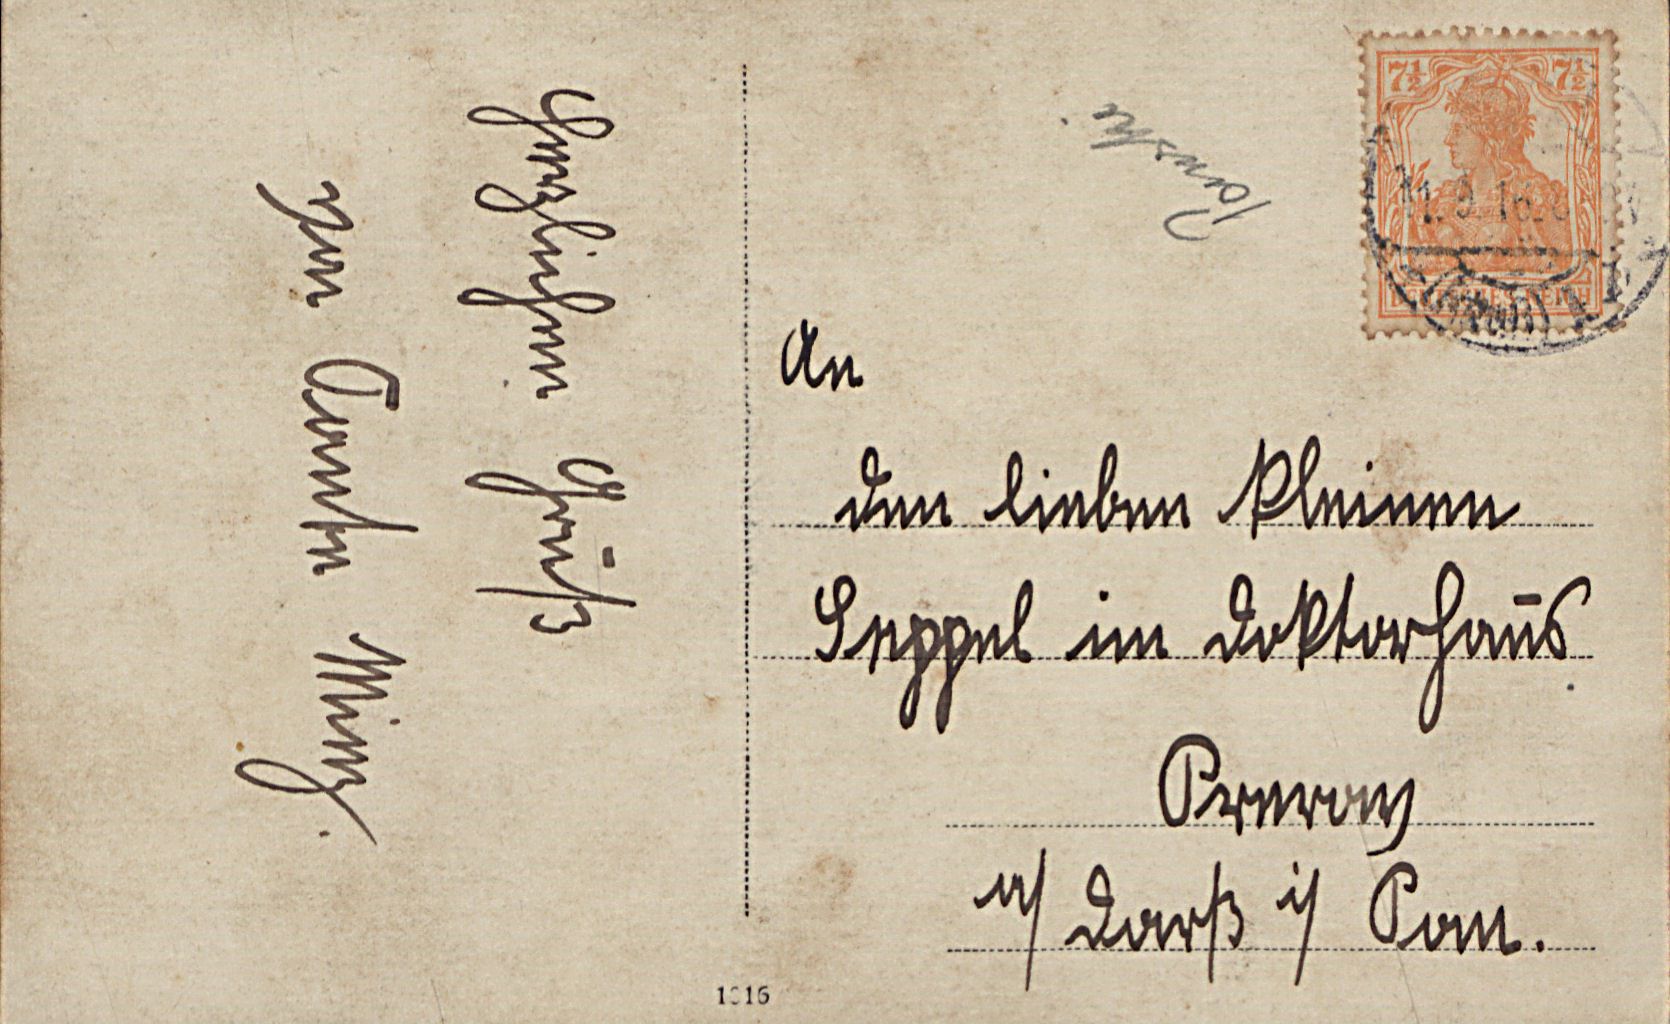 Herzlichen Gruß
von Tante Mimy.
7½ 7½
11. 9. 16.
DEUTSCHES REICH
An
den lieben kleinen
Seppel im Doktorhaus
Prerow
a/ Darß i/ Pom.
1916